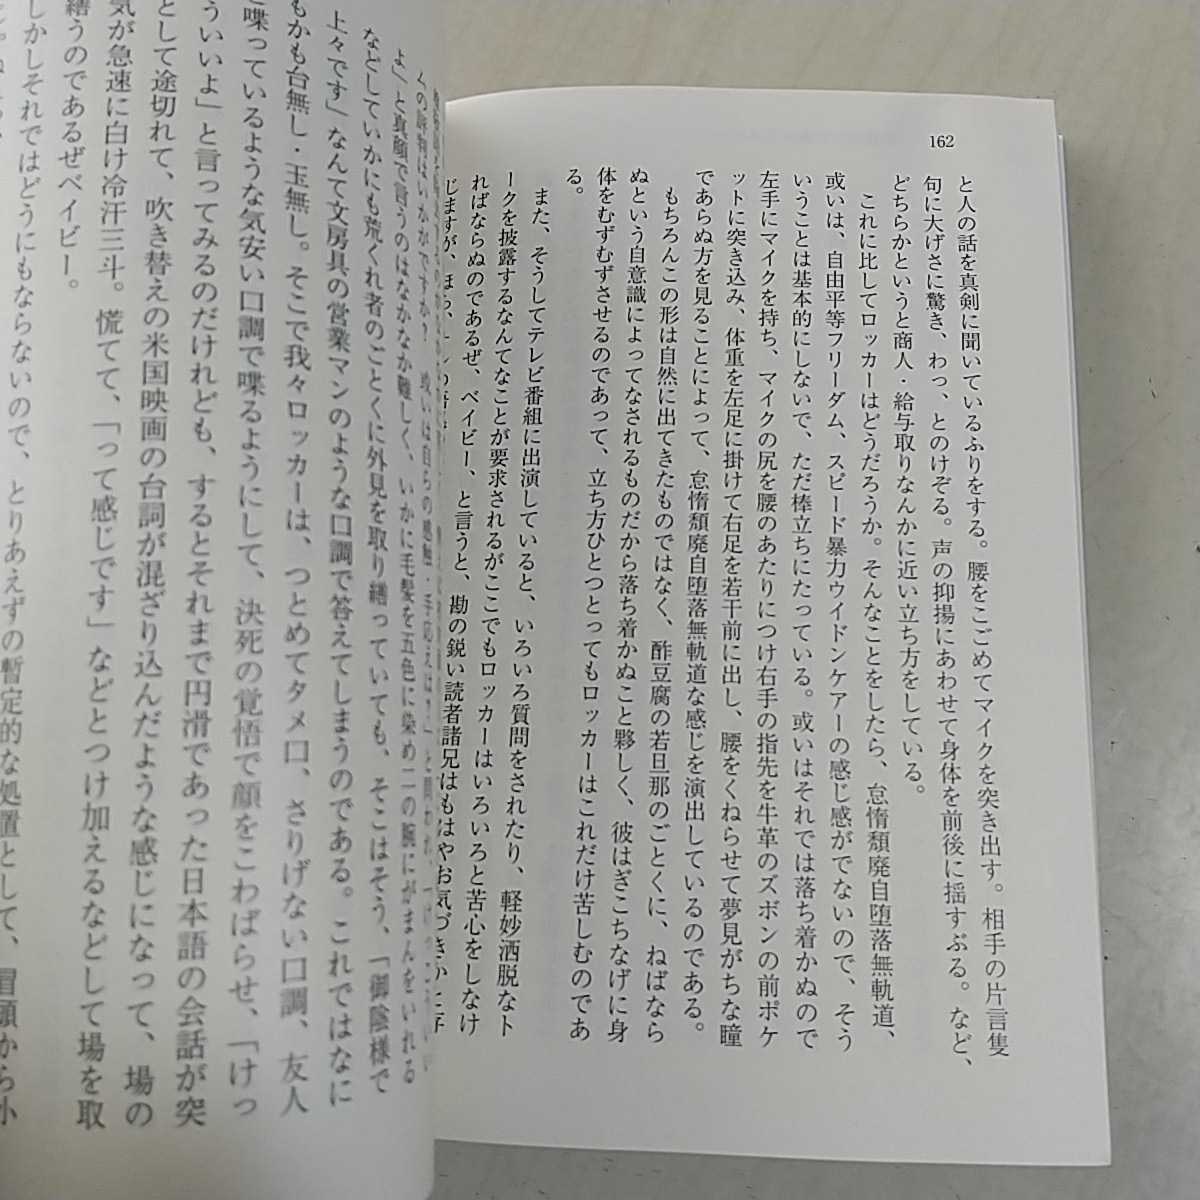 162
と人の話を真剣に聞いているふりをする。腰をこごめてマイクを突き出す。相手の片言隻
句に大げさに驚き、わっ、とのけぞる。声の抑揚にあわせて身体を前後に揺すぶる。など、
どちらかというと商人・給与取りなんかに近い立ち方をしている。
これに比してロッカーはどうだろうか。そんなことをしたら、怠惰頽廃自堕落無軌道、
或いは、自由平等フリーダム、スピード暴力ウイドンケアーの感じ感がでないので、そう
いうことは基本的にしないで、ただ棒立ちにたっている。或いはそれでは落ち着かぬので
左手にマイクを持ち、マイクの尻を腰のあたりにつけ右手の指先を牛革のズボンの前ポケ
ットに突き込み、体重を左足に掛けて右足を若干前に出し、腰をくねらせて夢見がちな瞳
であらぬ方を見ることによって、怠惰頽廃自堕落無軌道な感じを演出しているのである。
もちろんこの形は自然に出てきたものではなく、酢豆腐の若旦那のごとくに、ねばなら
ぬという自意識によってなされるものだから落ち着かぬこと夥しく、彼はぎこちなげに身
体をむずむずさせるのであって、立ち方ひとつとってもロッカーはこれだけ苦しむのであ
る。
また、そうしてテレビ番組に出演していると、いろいろ質問をされたり、軽妙洒脱なト
ークを披露するなんてなことが要求されるがここでもロッカーはいろいろと苦心をしなけ
ればならぬのであるぜ、ベイビー、と言うと、勘の鋭い読者諸兄はもはやお気づきかと存
じますが、ほら、
くの評判はいかがですか? 或いは自らの感触・手応えは?」と
よ」と真顔で言うのはなかなか難しく、いかに毛髪を五色に染め二の腕にがまんをいれる
などしていかにも荒くれ者のごとくに外見を取り繕っていても、そこはそう、「御陰様で
上々です」なんて文房具の営業マンのような口調で答えてしまうのである。これではなに
もかも台無し・玉無し。そこで我々ロッカーは、つとめてタメ口、さりげない口調、友人
と喋っているような気安い口調で喋るようにして、決死の覚悟で顔をこわばらせ、「けっ
こういいよ」と言ってみるのだけれども、するとそれまで円滑であった日本語の会話が突
として途切れて、吹き替えの米国映画の台詞が混ざり込んだような感じになって、場の
気が急速に白け冷汗三斗。慌てて、「って感じです」などとつけ加えるなどして場を取
繕うのであるぜベイビー。
しかしそれではどうにもならないので、とりあえずの暫定的な処置として、冒頭から小